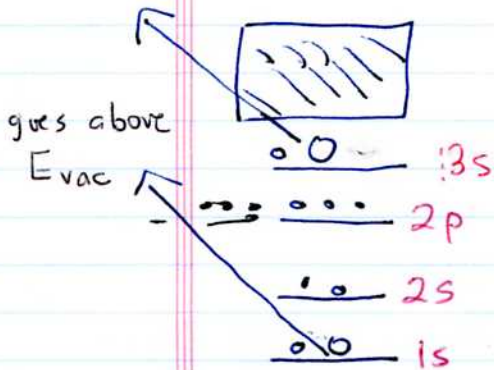 goes above
Evac
3s
2p
2s
1s